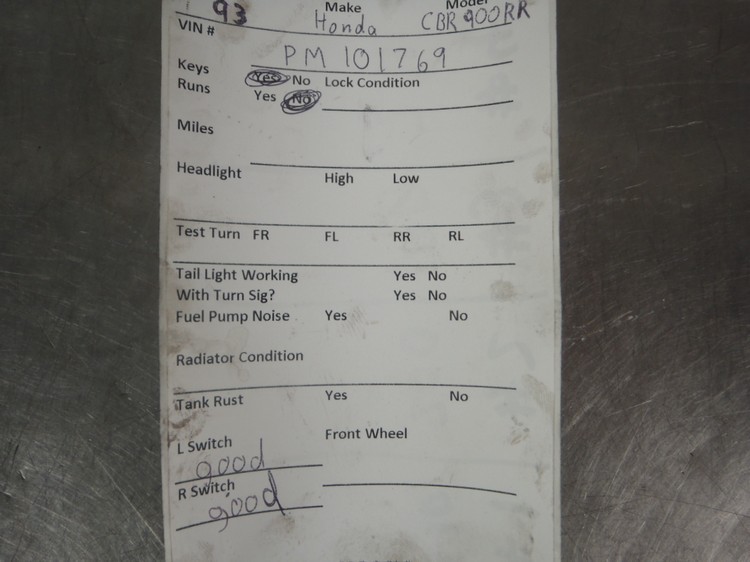 93 Make Honda Model CBR 900RR
VIN # PM 101769
Keys Yes No Lock Condition
Runs Yes No
Miles
Headlight High Low
Test Turn FR FL RR RL
Tail Light Working Yes No
With Turn Sig? Yes No
Fuel Pump Noise Yes No
Radiator Condition
Tank Rust Yes No
L Switch good Front Wheel
R Switch good